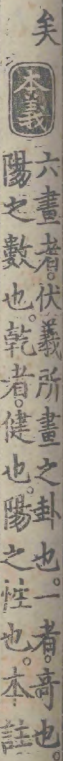 矣
本義
六畫者。伏羲所畫之卦也。一者。奇也。
陽之數也。乾者。健也。陽之性也。本註